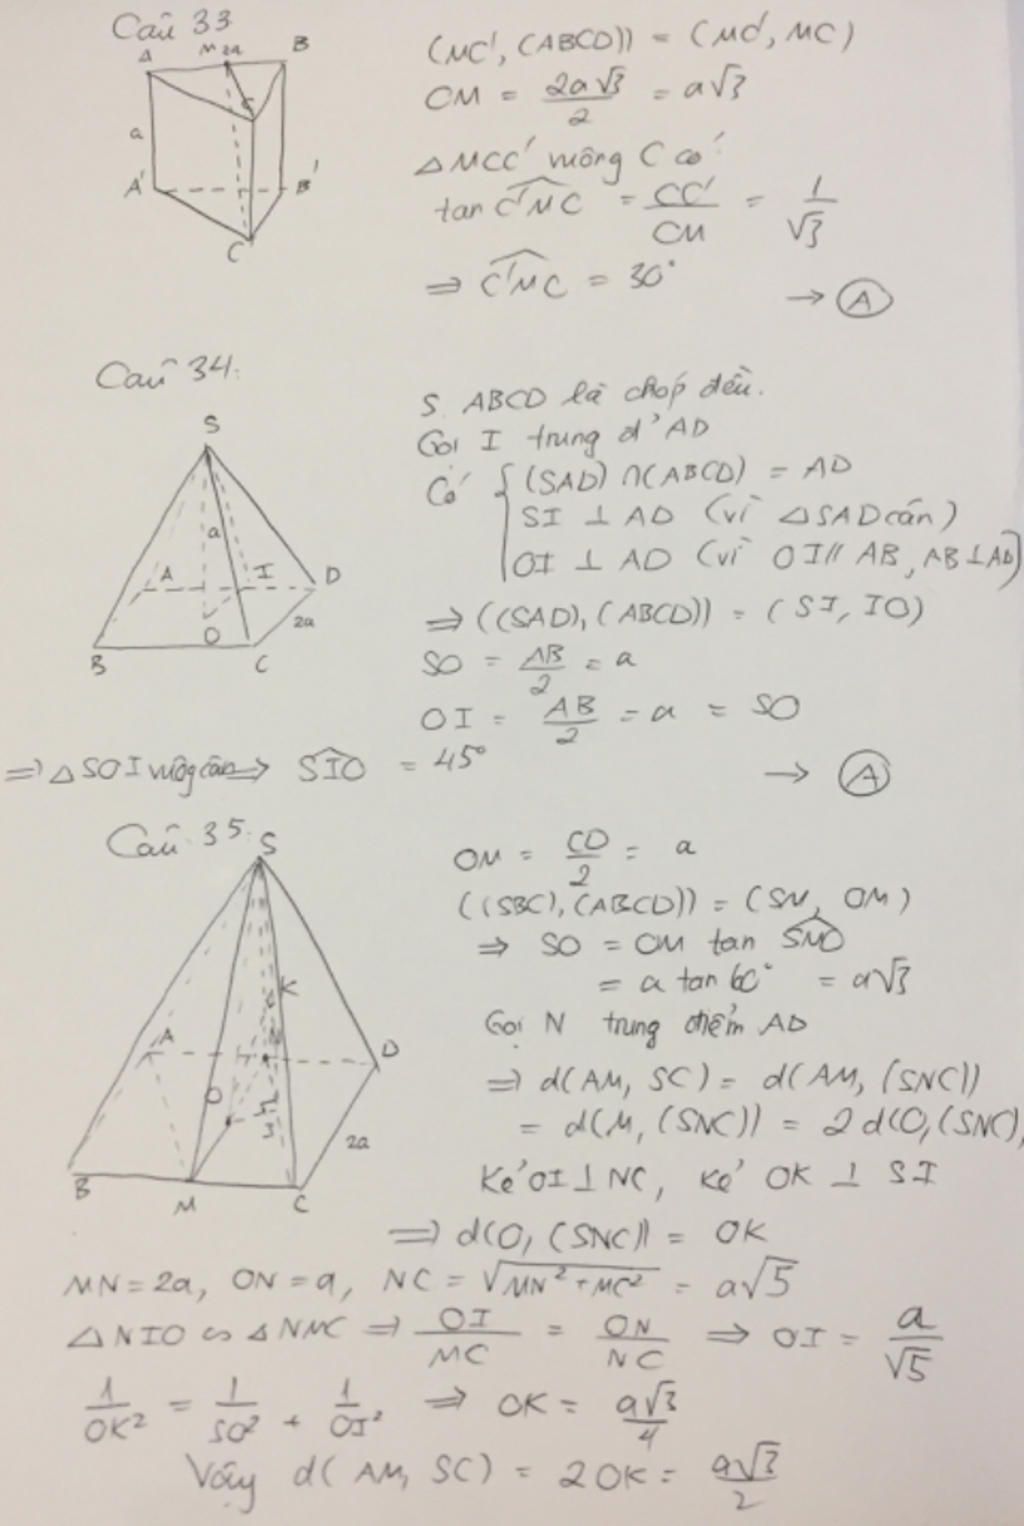 Câu 33
A M 2a B
C
a
A' B'
C'
(MC', (ABCD)) = (MC', MC)
CM = 2a√3/2 = a√3
△MCC' vuông C có
tan C'MC = CC'/CM = 1/√3
⇒ C'MC = 30°
→ A
Câu 34:
S
a
A I D
O 2a
B C
S. ABCD là chóp đều.
Gọi I trung đ' AD
Có { (SAD) ∩ (ABCD) = AD
SI ⊥ AD (vì △SAD cân)
OI ⊥ AD (vì OI // AB, AB ⊥ AD)
⇒ ((SAD), (ABCD)) = (SI, IO)
SO = AB/2 = a
OI = AB/2 = a = SO
⇒ △SOI vuông cân ⇒ SIO = 45°
→ A
Câu 35:
S
K
A D
O
2a
B M C
OM = CD/2 = a
((SBC), (ABCD)) = (SM, OM)
⇒ SO = OM tan SMO
= a tan 60° = a√3
Gọi N trung điểm AD
⇒ d(AM, SC) = d(AM, (SNC))
= d(M, (SNC)) = 2d(O, (SNC)
Kẻ OI ⊥ NC, kẻ OK ⊥ SI
⇒ d(O, (SNC)) = OK
MN = 2a, ON = a, NC = √MN² + MC² = a√5
△NIO ∽ △NMC ⇒ OI/MC = ON/NC ⇒ OI = a/√5
1/OK² = 1/SO² + 1/OI² ⇒ OK = a√3/4
Vậy d(AM, SC) = 2OK = a√3/2